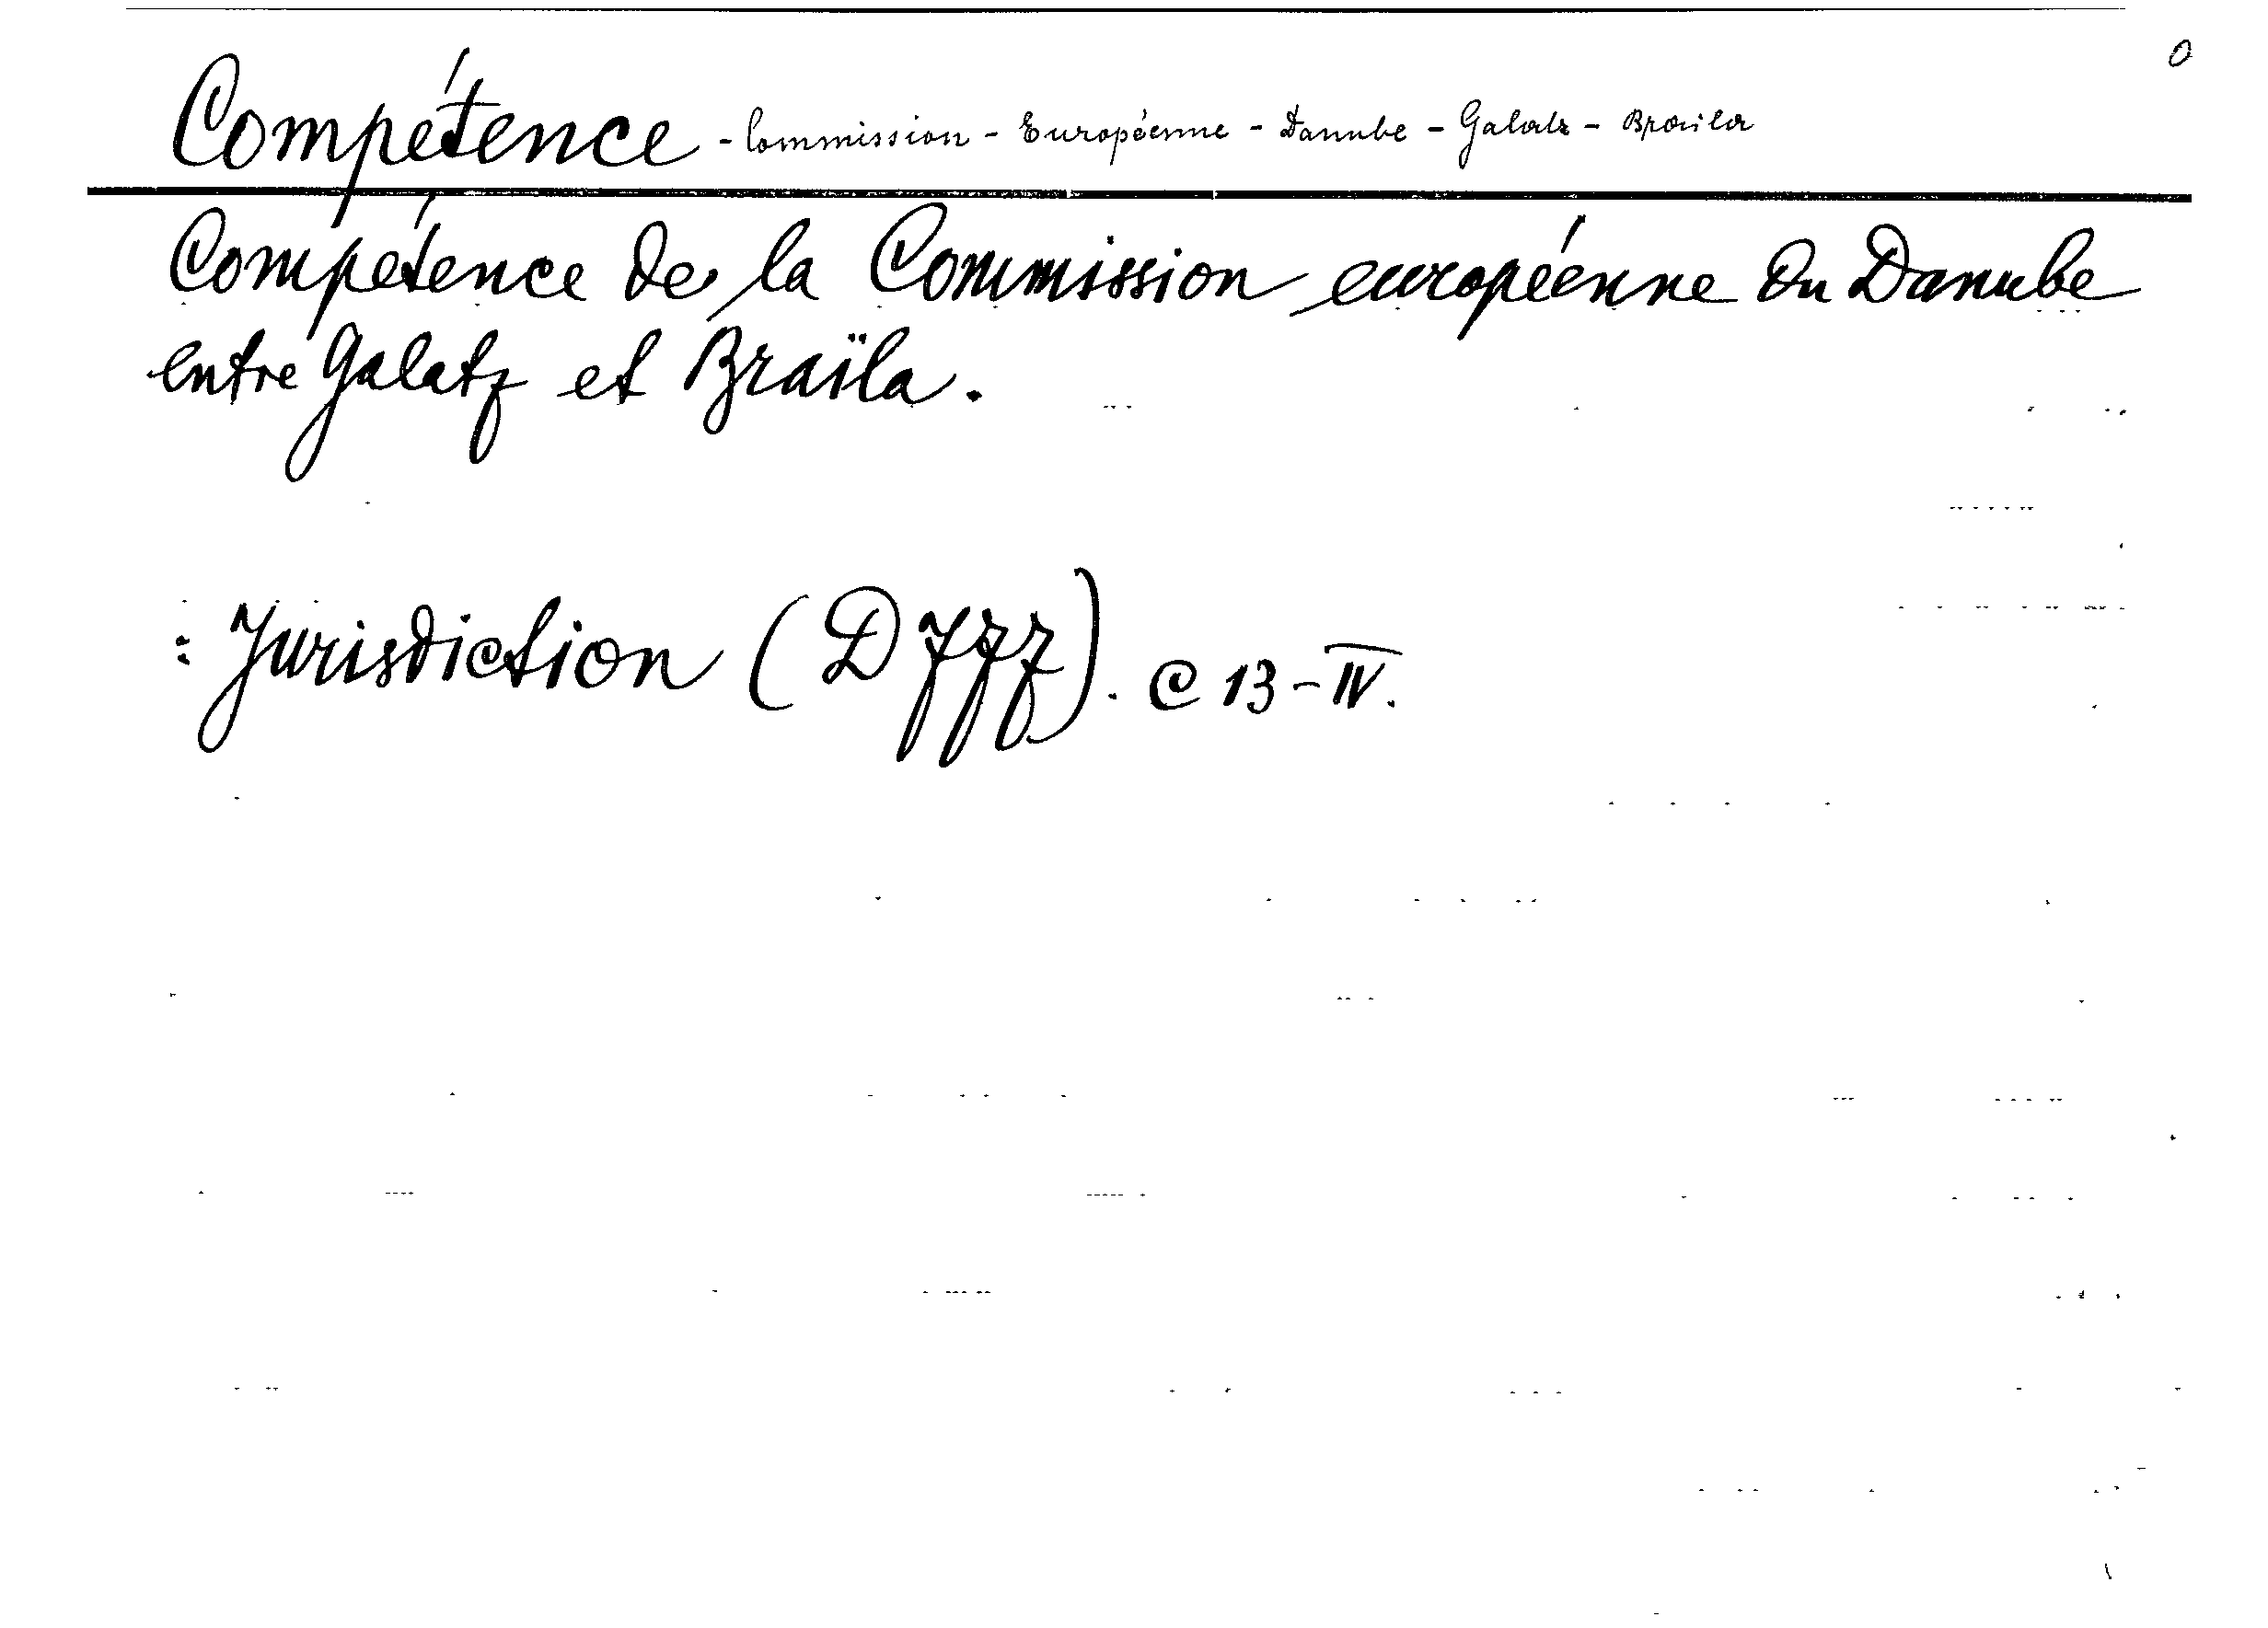 0
Compétence - Commission - Européenne - Danube - Galatz - Braila
Compétence de la Commission européenne du Danube
entre Galatz et Braïla.
: Jurisdiction ( ). C 13 - IV.